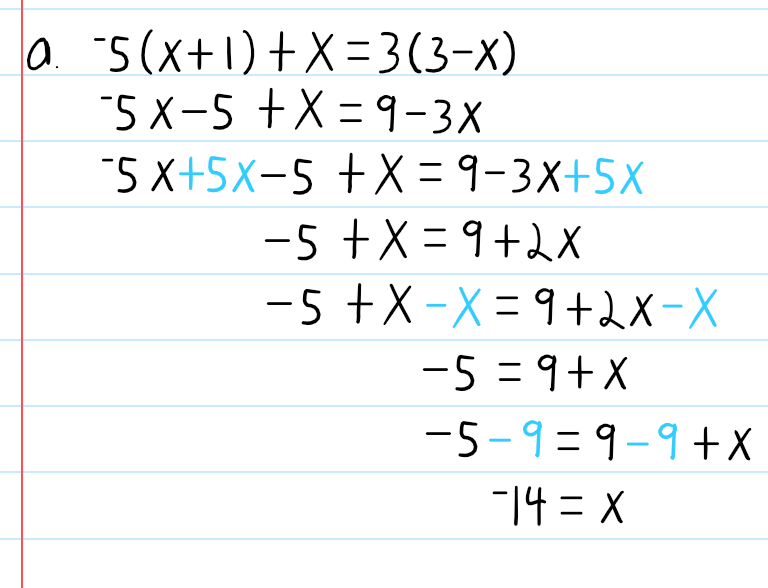 a. ⁻5(x+1)+x=3(3-x)
⁻5x-5+x=9-3x
⁻5x+5x-5+x=9-3x+5x
-5+x=9+2x
-5+x-x=9+2x-x
-5=9+x
-5-9=9-9+x
⁻14=x